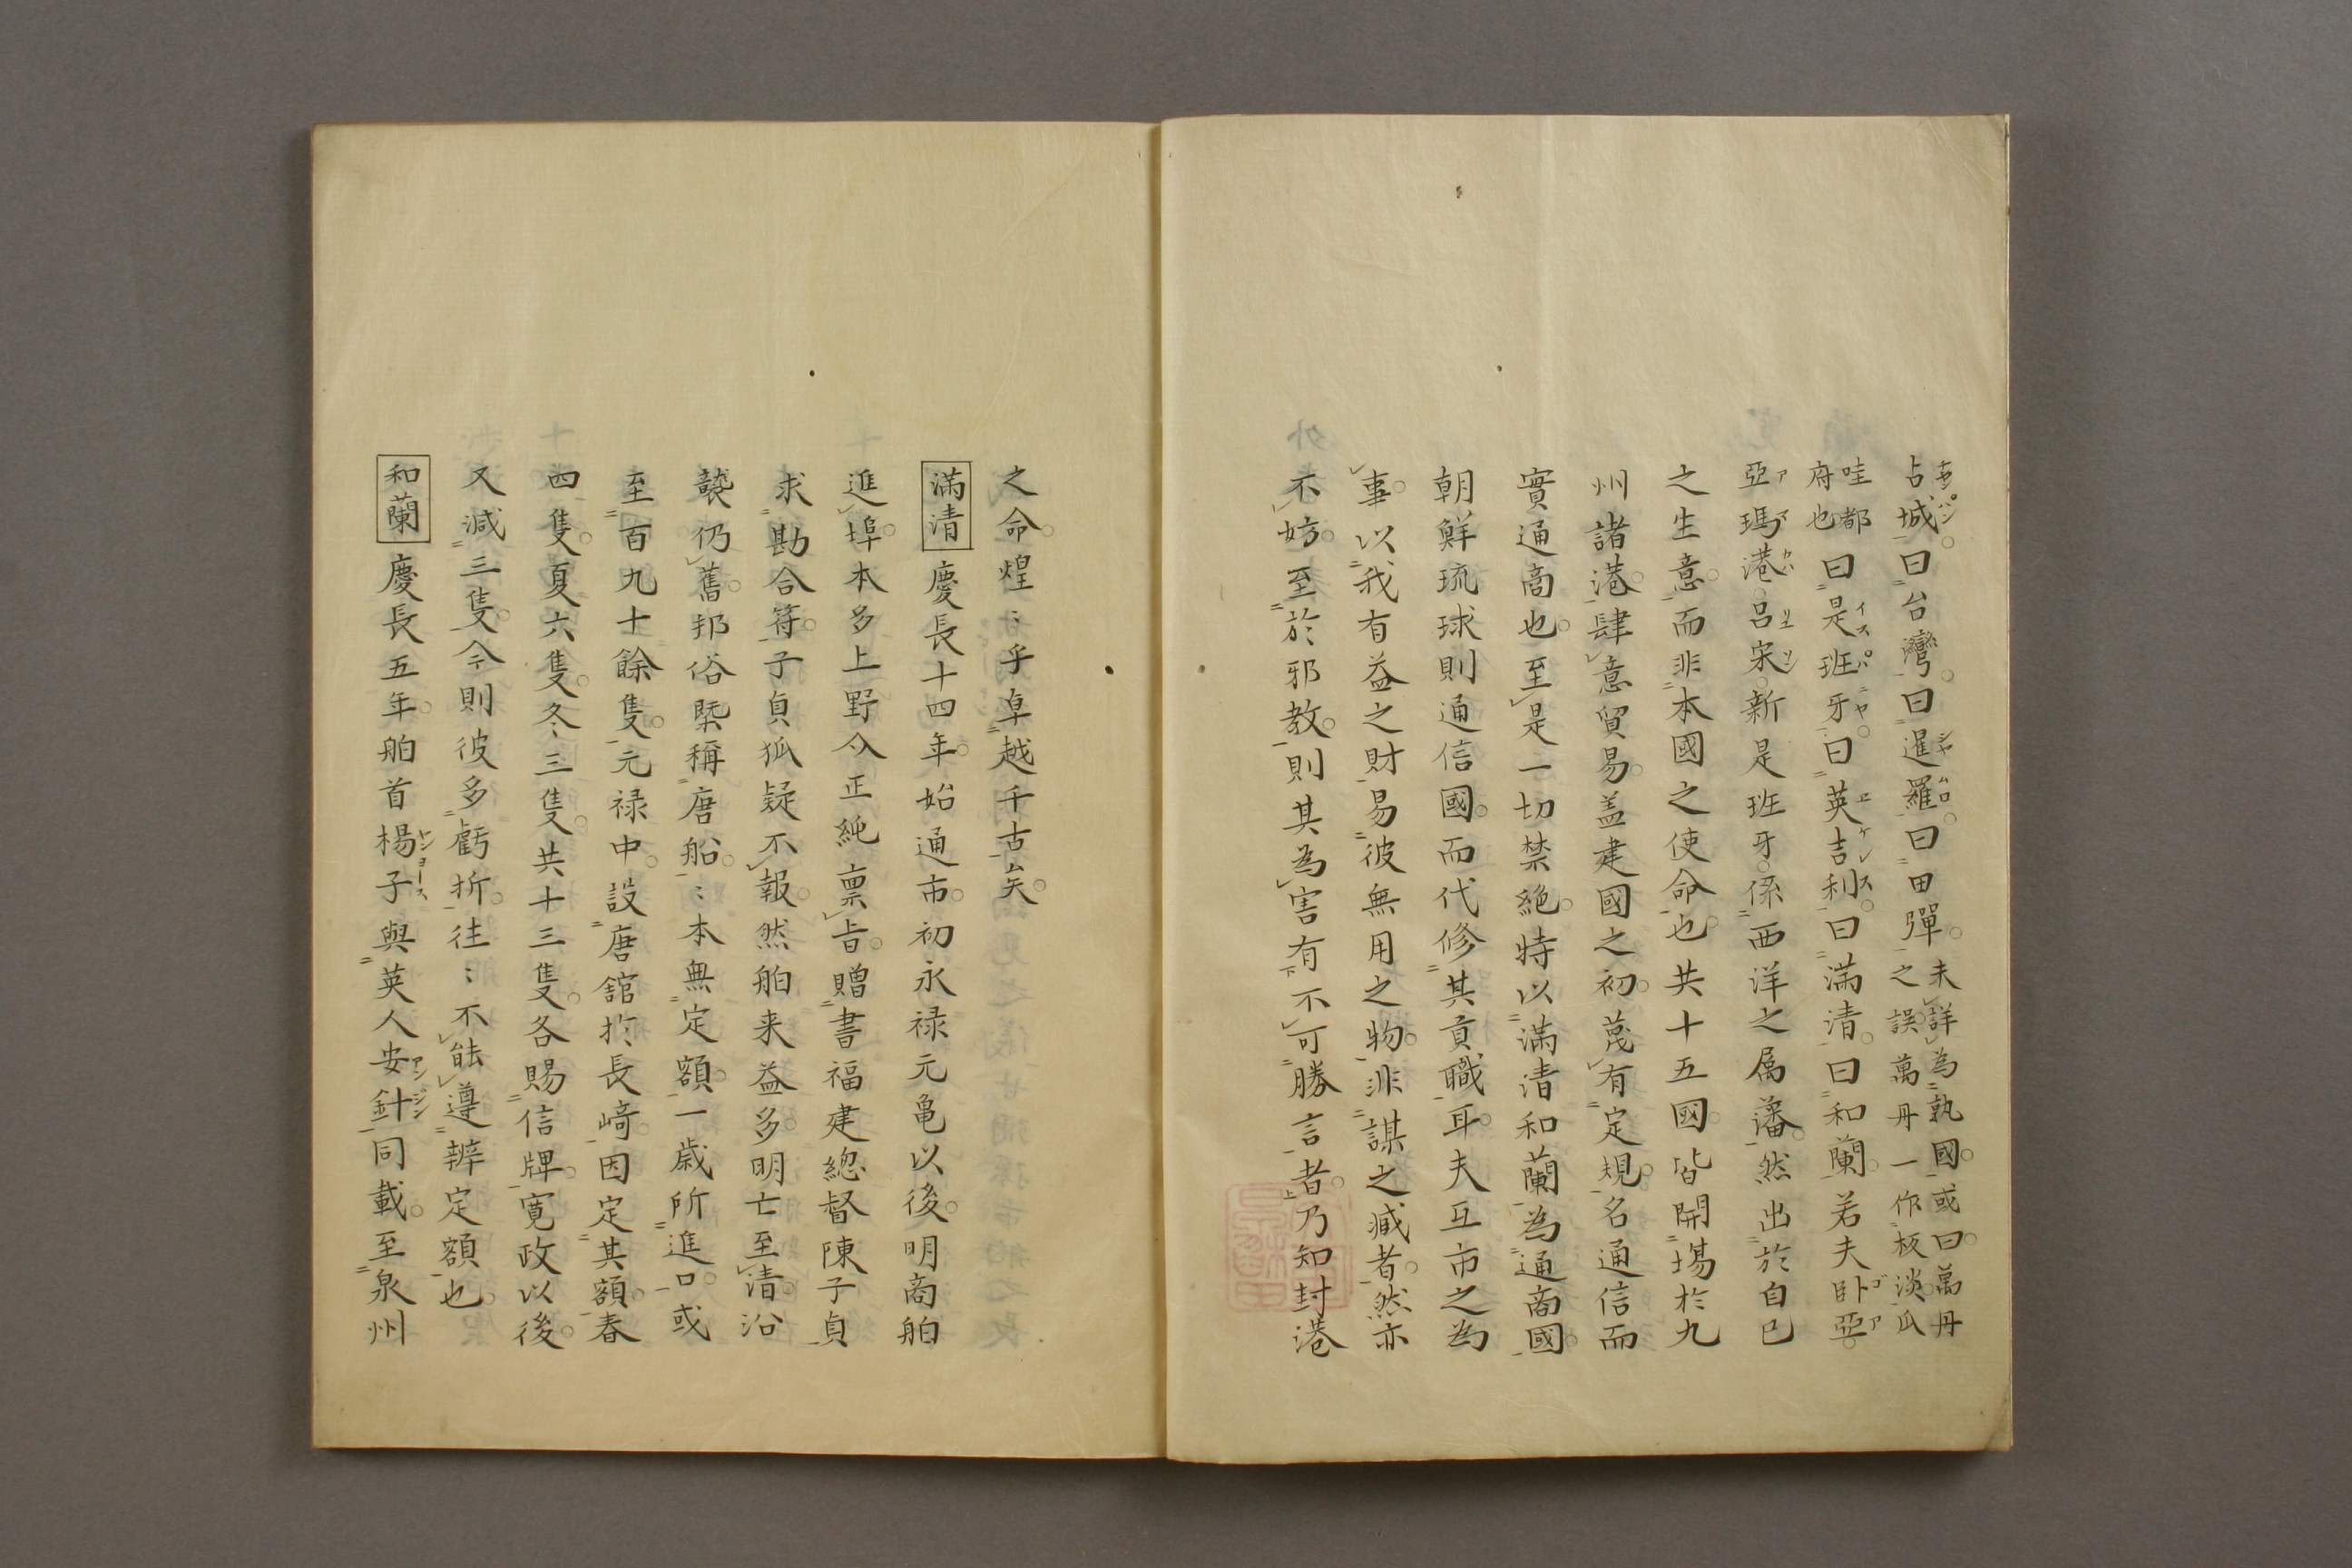 占城曰台灣曰暹羅曰田彈未詳為孰國或曰萬丹
之誤萬丹一作板淡瓜
哇都
府也曰是班牙曰英吉利曰滿清曰和蘭若夫卧亞
亞瑪港呂宋新是班牙係西洋之属藩然出於自己
之生意而非本國之使命也共十五國皆開場於九
州諸港肆意貿易盖建國之初蔑有定規名通信而
實通商也至是一切禁絶特以滿清和蘭為通商國
朝鮮琉球則通信國而代修其貢職耳夫互市之為
事以我有益之財易彼無用之物非謀之臧者然亦
不妨至於邪教則其為害有不可勝言者乃知封港
之命煌〻乎卓越千古矣
滿清 慶長十四年始通市初永禄元亀以後明商舶
進埠本多上野介正純禀旨贈書福建總督陳子貞
求勘合符子貞狐疑不報然舶来益多明亡至清沿
襲仍舊邦俗槩稱唐船〻本無定額一歳所進口或
至百九十餘隻元禄中設唐舘於長﨑因定其額春
四隻夏六隻冬三隻共十三隻各賜信牌寛政以後
又減三隻今則彼多虧折往〻不能遵辨定額也
和蘭 慶長五年舶首楊子與英人安針同載至泉州